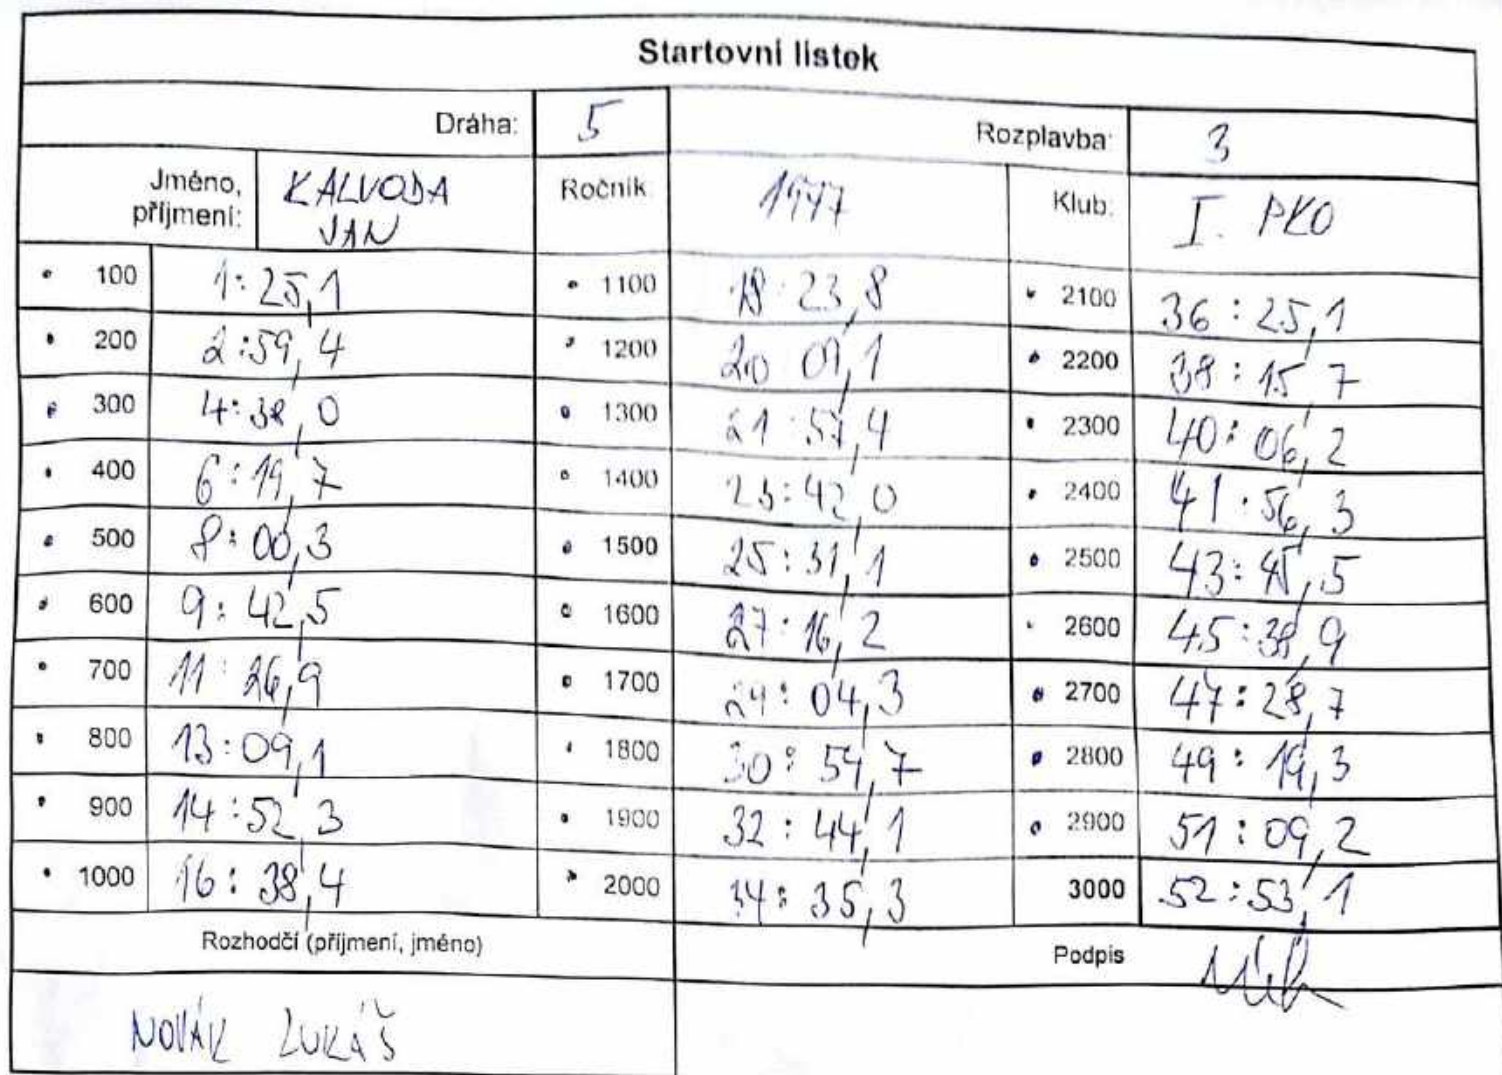 Startovní lístek
Dráha: 5 Rozplavba: 3
Jméno, příjmení: KALVODA JAN Ročník: 1977 Klub: I. PKO
100 1:25,1 1100 18:23,8 2100 36:25,1
200 2:59,4 1200 20 09,1 2200 38:15,7
300 4:38,0 1300 21:57,4 2300 40:06,2
400 6:19,7 1400 23:42,0 2400 41:56,3
500 8:00,3 1500 25:31,1 2500 43:45,5
600 9:42,5 1600 27:16,2 2600 45:38,9
700 11:26,9 1700 29:04,3 2700 47:28,7
800 13:09,1 1800 30:54,7 2800 49:19,3
900 14:52,3 1900 32:44,1 2900 51:09,2
1000 16:38,4 2000 34:35,3 3000 52:53,1
Rozhodčí (příjmení, jméno) Podpis
NOVÁK LUKÁŠ